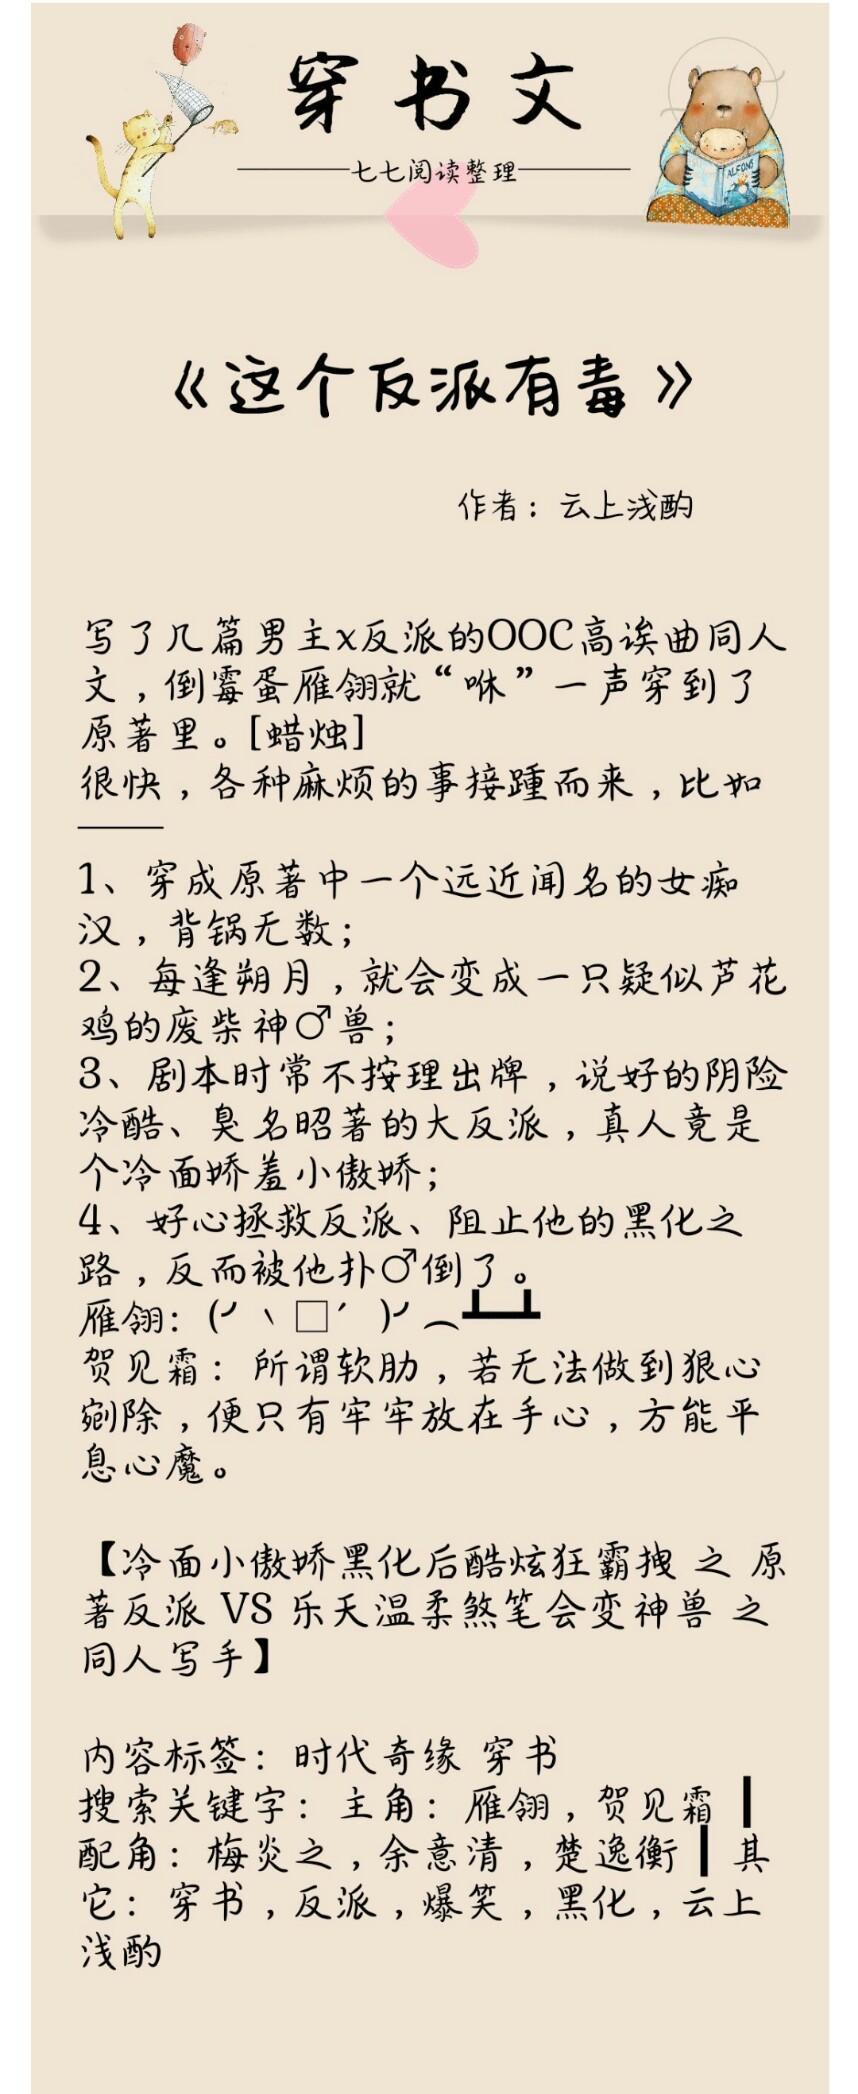 穿书文
七七阅读整理
ALFONS
《这个反派有毒》
作者：云上浅酌
写了几篇男主x反派的OOC高诶曲同人
文，倒霉蛋雁翎就“咻”一声穿到了
原著里。[蜡烛]
很快，各种麻烦的事接踵而来，比如
——
1、穿成原著中一个远近闻名的女痴
汉，背锅无数；
2、每逢朔月，就会变成一只疑似芦花
鸡的废柴神♂兽；
3、剧本时常不按理出牌，说好的阴险
冷酷、臭名昭著的大反派，真人竟是
个冷面娇羞小傲娇；
4、好心拯救反派、阻止他的黑化之
路，反而被他扑♂倒了。
雁翎：(╯‵□′)╯︵┻━┻
贺见霜：所谓软肋，若无法做到狠心
剜除，便只有牢牢放在手心，方能平
息心魔。
【冷面小傲娇黑化后酷炫狂霸拽 之 原
著反派 VS 乐天温柔煞笔会变神兽 之
同人写手】
内容标签：时代奇缘 穿书
搜索关键字：主角：雁翎，贺见霜┃
配角：梅炎之，余意清，楚逸衡┃其
它：穿书，反派，爆笑，黑化，云上
浅酌